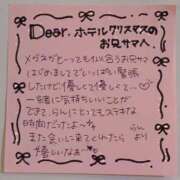 Dear.ホテルクリスマスの
お兄サマへ、
メガネがとっても似合うお兄サマ
はじめましてでいっぱい緊張
したけど優しくて優しくて…
一緒に気持ちいいことが
できて、らんにとってもステキな
時間だったよ〜
また会いに来てくれたら
嬉しいなぁ
らん
より